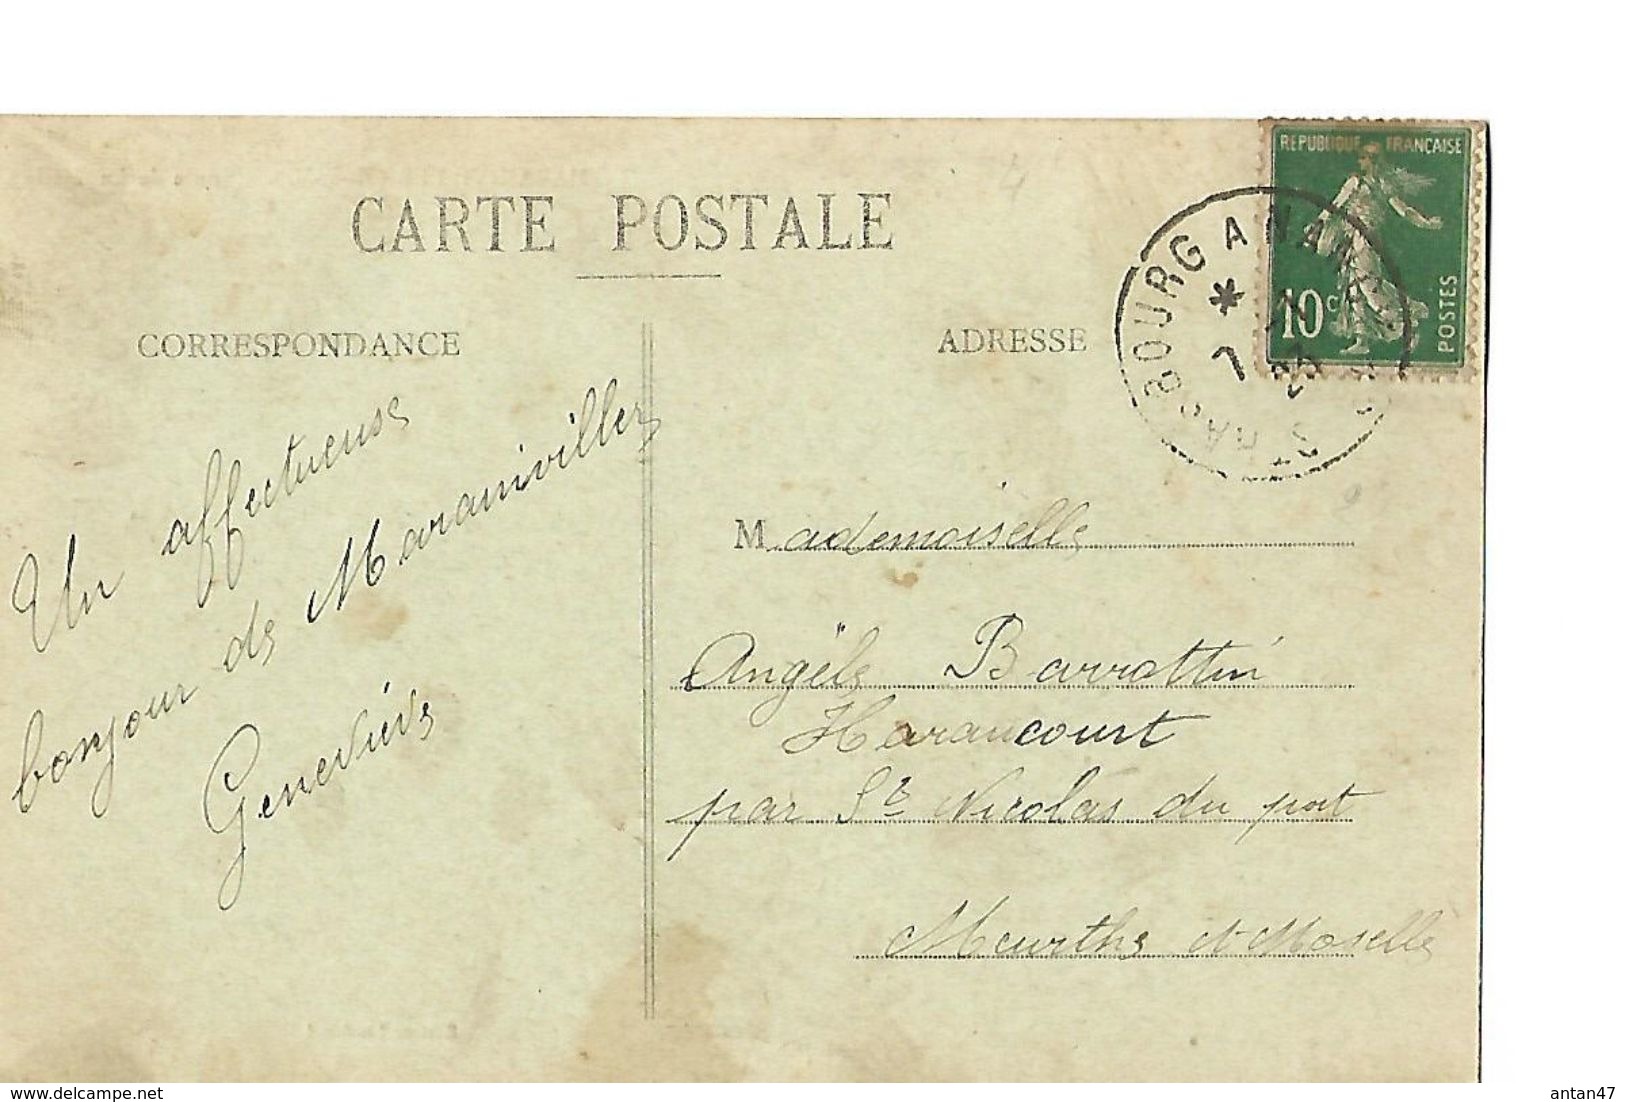 CARTE POSTALE
CORRESPONDANCE
ADRESSE
REPUBLIQUE FRANÇAISE
10c
POSTES
STRASBOURG A NANCY
* 7
23
Un affectueuse
bonjour de Marainviller
Geneviève
Mademoiselle
Angèle Barrottin
Haraucourt
par St Nicolas du port
Meurthe et Moselle
delcampe.net
antan47